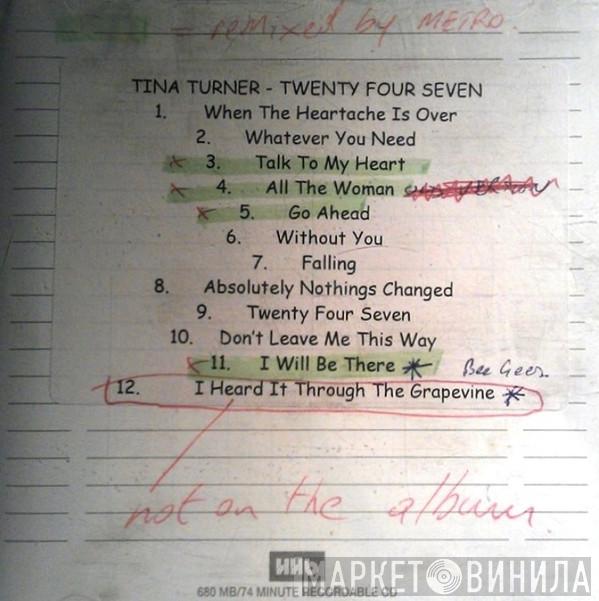 = remixed by METRO.
TINA TURNER - TWENTY FOUR SEVEN
1. When The Heartache Is Over
2. Whatever You Need
× 3. Talk To My Heart
× 4. All The Woman
× 5. Go Ahead
6. Without You
7. Falling
8. Absolutely Nothings Changed
9. Twenty Four Seven
10. Don't Leave Me This Way
× 11. I Will Be There * Bee Gees.
12. I Heard It Through The Grapevine *
not on the album.
HHB
680 MB/74 MINUTE RECORDABLE CD
МАРКЕТ ВИНИЛА